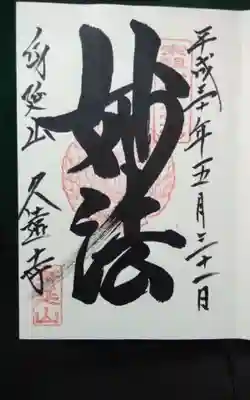 平成三十年五月三十一日
妙法
身延山 久遠寺